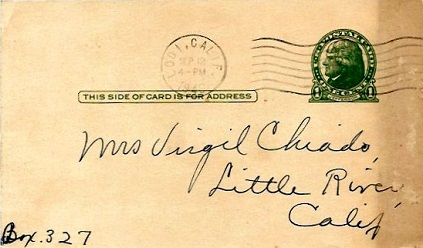 LODI, CALIF.
SEP 12
4-PM
U.S. POSTAL CARD
THIS SIDE OF CARD IS FOR ADDRESS
Mrs Virgil Chiado,
Little River
Calif
Box. 327